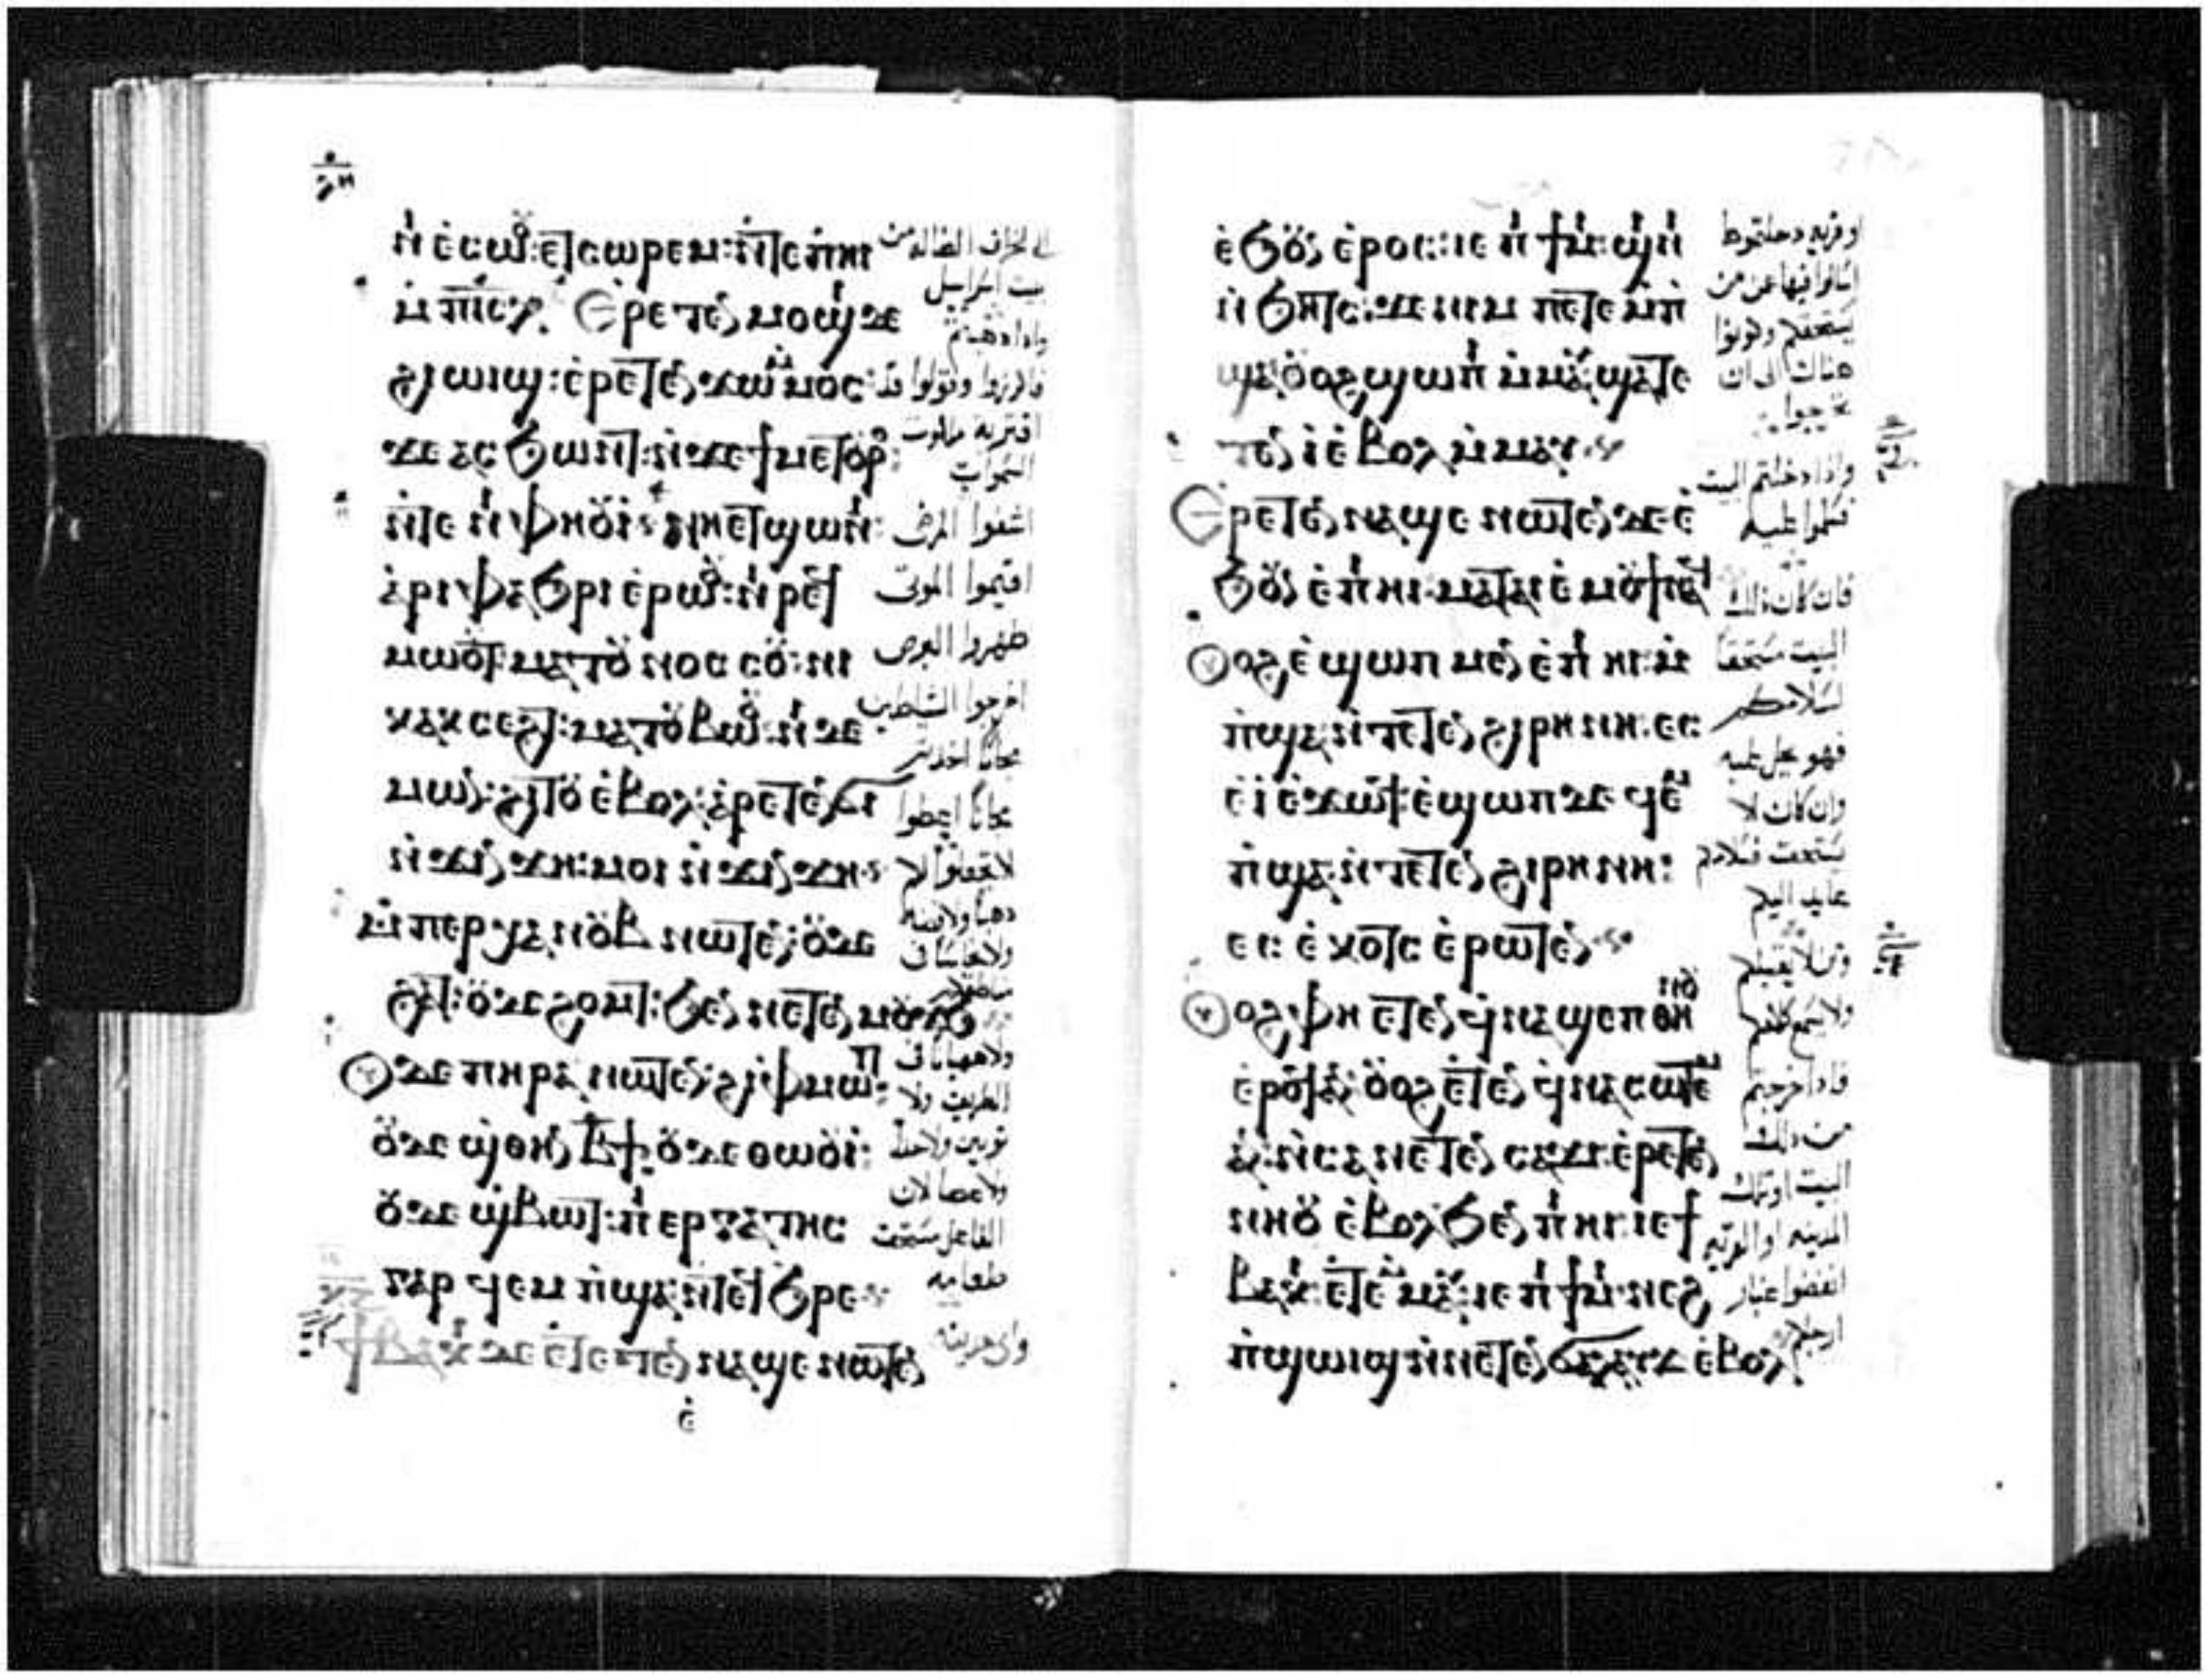 ⲛ̀ⲉ̀ⲥⲱⲟ̈: ⲉⲧⲥⲱⲣⲉⲙ: ⲛ̀ⲧⲉⲡⲏⲓ
ⲙ̀ⲡⲓⲥⲗ Ⲉⲣⲉⲧⲉⲛ ⲙⲟϣⲓ ⲇⲉ
ϩⲓⲱⲓϣ: ⲉ̀ⲣⲉⲧⲉⲛ ϫⲱ ⲙⲙⲟⲥ
ϫⲉ ⲁⲥϧⲱⲛⲧ: ⲛ̀ϫⲉ ϯⲙⲉⲧⲟ̈ⲣⲟ:
ⲛ̀ⲧⲉ ⲛⲓⲫⲏⲟ̈ⲓ: ⲛⲏⲉⲧϣⲱⲛⲓ:
ⲁⲣⲓⲫⲁϧⲣⲓ ⲉ̀ⲣⲱⲟ̈: ⲛⲓⲣⲉϥ
ⲙⲱⲟ̈ⲧ ⲙⲁⲧⲟ̈ⲛⲟⲥⲟ̈: ⲛⲓ
ⲕⲁⲕⲥⲉϩⲧ: ⲙⲁⲧⲟ̈ⲃⲱⲟ̈: ⲛⲓⲇⲉ
ⲙⲱⲛ: ϩⲓⲧⲟ̈ ⲉ̀ⲃⲟⲗ: ⲉⲣⲉⲧⲉⲛϭⲓ
ⲛ̀ϫⲓⲛϫⲏ: ⲙⲟⲓ ⲛ̀ϫⲓⲛϫⲏ
ⲙ̀ⲡⲉⲣⲭⲁ ⲛⲟ̈ⲃ ⲛⲱⲧⲉⲛ: ⲟ̈ⲇⲉ
ϩⲁⲧ: ⲟ̈ⲇⲉ ϩⲟⲙⲧ: ϧⲉⲛ ⲛⲉⲧⲉⲛ
ⲟ̈ⲇⲉ ⲡⲏⲣⲁ ⲛⲱⲧⲉⲛ: ϩⲓ ⲫⲙⲱⲓⲧ:
ⲟ̈ⲇⲉ ϣⲑⲏⲛ ⲃ̅ϯ: ⲟ̈ⲇⲉ ⲑⲱⲟ̈ⲓ:
ⲟ̈ⲇⲉ ϣⲃⲱⲧ: ⲡⲓⲉⲣⲅⲁⲧⲏⲥ
ⲅⲁⲣ ϥⲉⲙⲡ̀ϣⲁ ⲛ̀ⲧⲉϥϧⲣⲉ
ϯⲃⲁⲕⲓ ⲇⲉ ⲉ̀ⲧⲉⲧⲉⲛ ⲛⲁϣⲉ ⲛⲱⲧⲉⲛ
ⲉ̀
الى الخراف الضاله من
بيت اسرايل
واذا ذهبتم
فاكرزوا وقولوا قد
اقتربة ملكوت
السموات
اشفوا المرضى
اقيموا الموتى
طهروا البرص
اخرجوا الشياطين
مجانا اخذتم
مجانا اعطوا
ولا
الطريق ولا
ثوبين ولا حذا
ولا عصا لان
الفاعل مستحق
طعامه
واى مدينه
ⲉ̀ϧⲟ̈ⲛ ⲉ̀ⲣⲟⲥ: ⲓⲉ ⲡⲓϯⲙⲓ: ϣⲓⲛⲓ
ⲛ̀ϧⲏⲧⲥ: ϫⲉ ⲛⲓⲙ ⲡⲉⲧⲉⲙⲡ̀
ϣⲁ: ⲟ̈ⲟϩ ϣⲱⲡⲓ ⲙ̀ⲙⲁⲩ ϣⲁⲧⲉ
ⲧⲉⲛⲓ̀ ⲉ̀ⲃⲟⲗ ⲙ̀ⲙⲁⲩ
Ⲉⲣⲉⲧⲉⲛ ⲛⲁϣⲉ ⲛⲱⲧⲉⲛ ⲇⲉ ⲉ̀
ϧⲟ̈ⲛ ⲉ̀ⲡⲓⲏⲓ
ⲟ̈ⲟϩ ⲉϣⲱⲡ ⲙⲉⲛ ⲉ̀ⲡⲓⲏⲓ: ⲙ̀
ⲡ̀ϣⲁ: ⲛ̀ⲧⲉⲧⲉⲛ ϩⲓⲣⲏⲛⲏ: ⲉⲥ
ⲉ̀ⲓ̀ ⲉ̀ϫⲱϥ: ⲉ̀ϣⲱⲡ ⲇⲉ ϥⲉⲙ
ⲡ̀ϣⲁ: ⲛ̀ⲧⲉⲧⲉⲛ ϩⲓⲣⲏⲛⲏ:
ⲉⲥⲉ̀ⲕⲟⲧⲥ ⲉ̀ⲣⲱⲧⲉⲛ
ⲟ̈ⲟϩ ⲫⲏ ⲉⲧⲉⲛ ϥⲛⲁϣⲉⲡ ⲑⲏⲛⲟ̈
ⲉ̀ⲣⲟϥ ⲁⲛ: ⲟ̈ⲟϩ ⲉ̀ⲧⲉⲛ ϥⲛⲁⲥⲱⲧⲉⲙ
ⲁⲛ: ⲛ̀ⲥⲁ ⲛⲉⲧⲉⲛ ⲥⲁϫⲓ: ⲉ̀ⲣⲉⲧⲉⲛ
ⲛⲏⲟ̈ ⲉ̀ⲃⲟⲗ ϧⲉⲛ ⲡⲓⲏⲓ: ⲓⲉ ϯ
ⲃⲁⲕⲓ: ⲉ̀ⲧⲉⲙⲙⲁⲩ: ⲓⲉ ⲡⲓϯⲙⲓ: ⲛⲉϩ
ⲡ̀ϣⲱⲓϣ ⲛ̀ⲛⲉⲧⲉⲛϭⲁⲗⲁⲩϫ ⲉ̀ⲃⲟⲗ
او قريه دخلتموها
اسالوا فيها عن من
يستحقكم وكونوا
هناك الى ان
تخرجوا
واذا دخلتم البيت
فسلموا عليه
فان كان ذلك
البيت مستحقا
لسلامكم
فهو يحل عليه
وان كان لا
يستحق فسلامكم
عايد اليكم
ومن لا يقبلكم
ولا يسمع كلامكم
فاذا خرجتم
من ذلك
البيت او تلك
المدينه او القريه
انفضوا غبار
ارجلكم